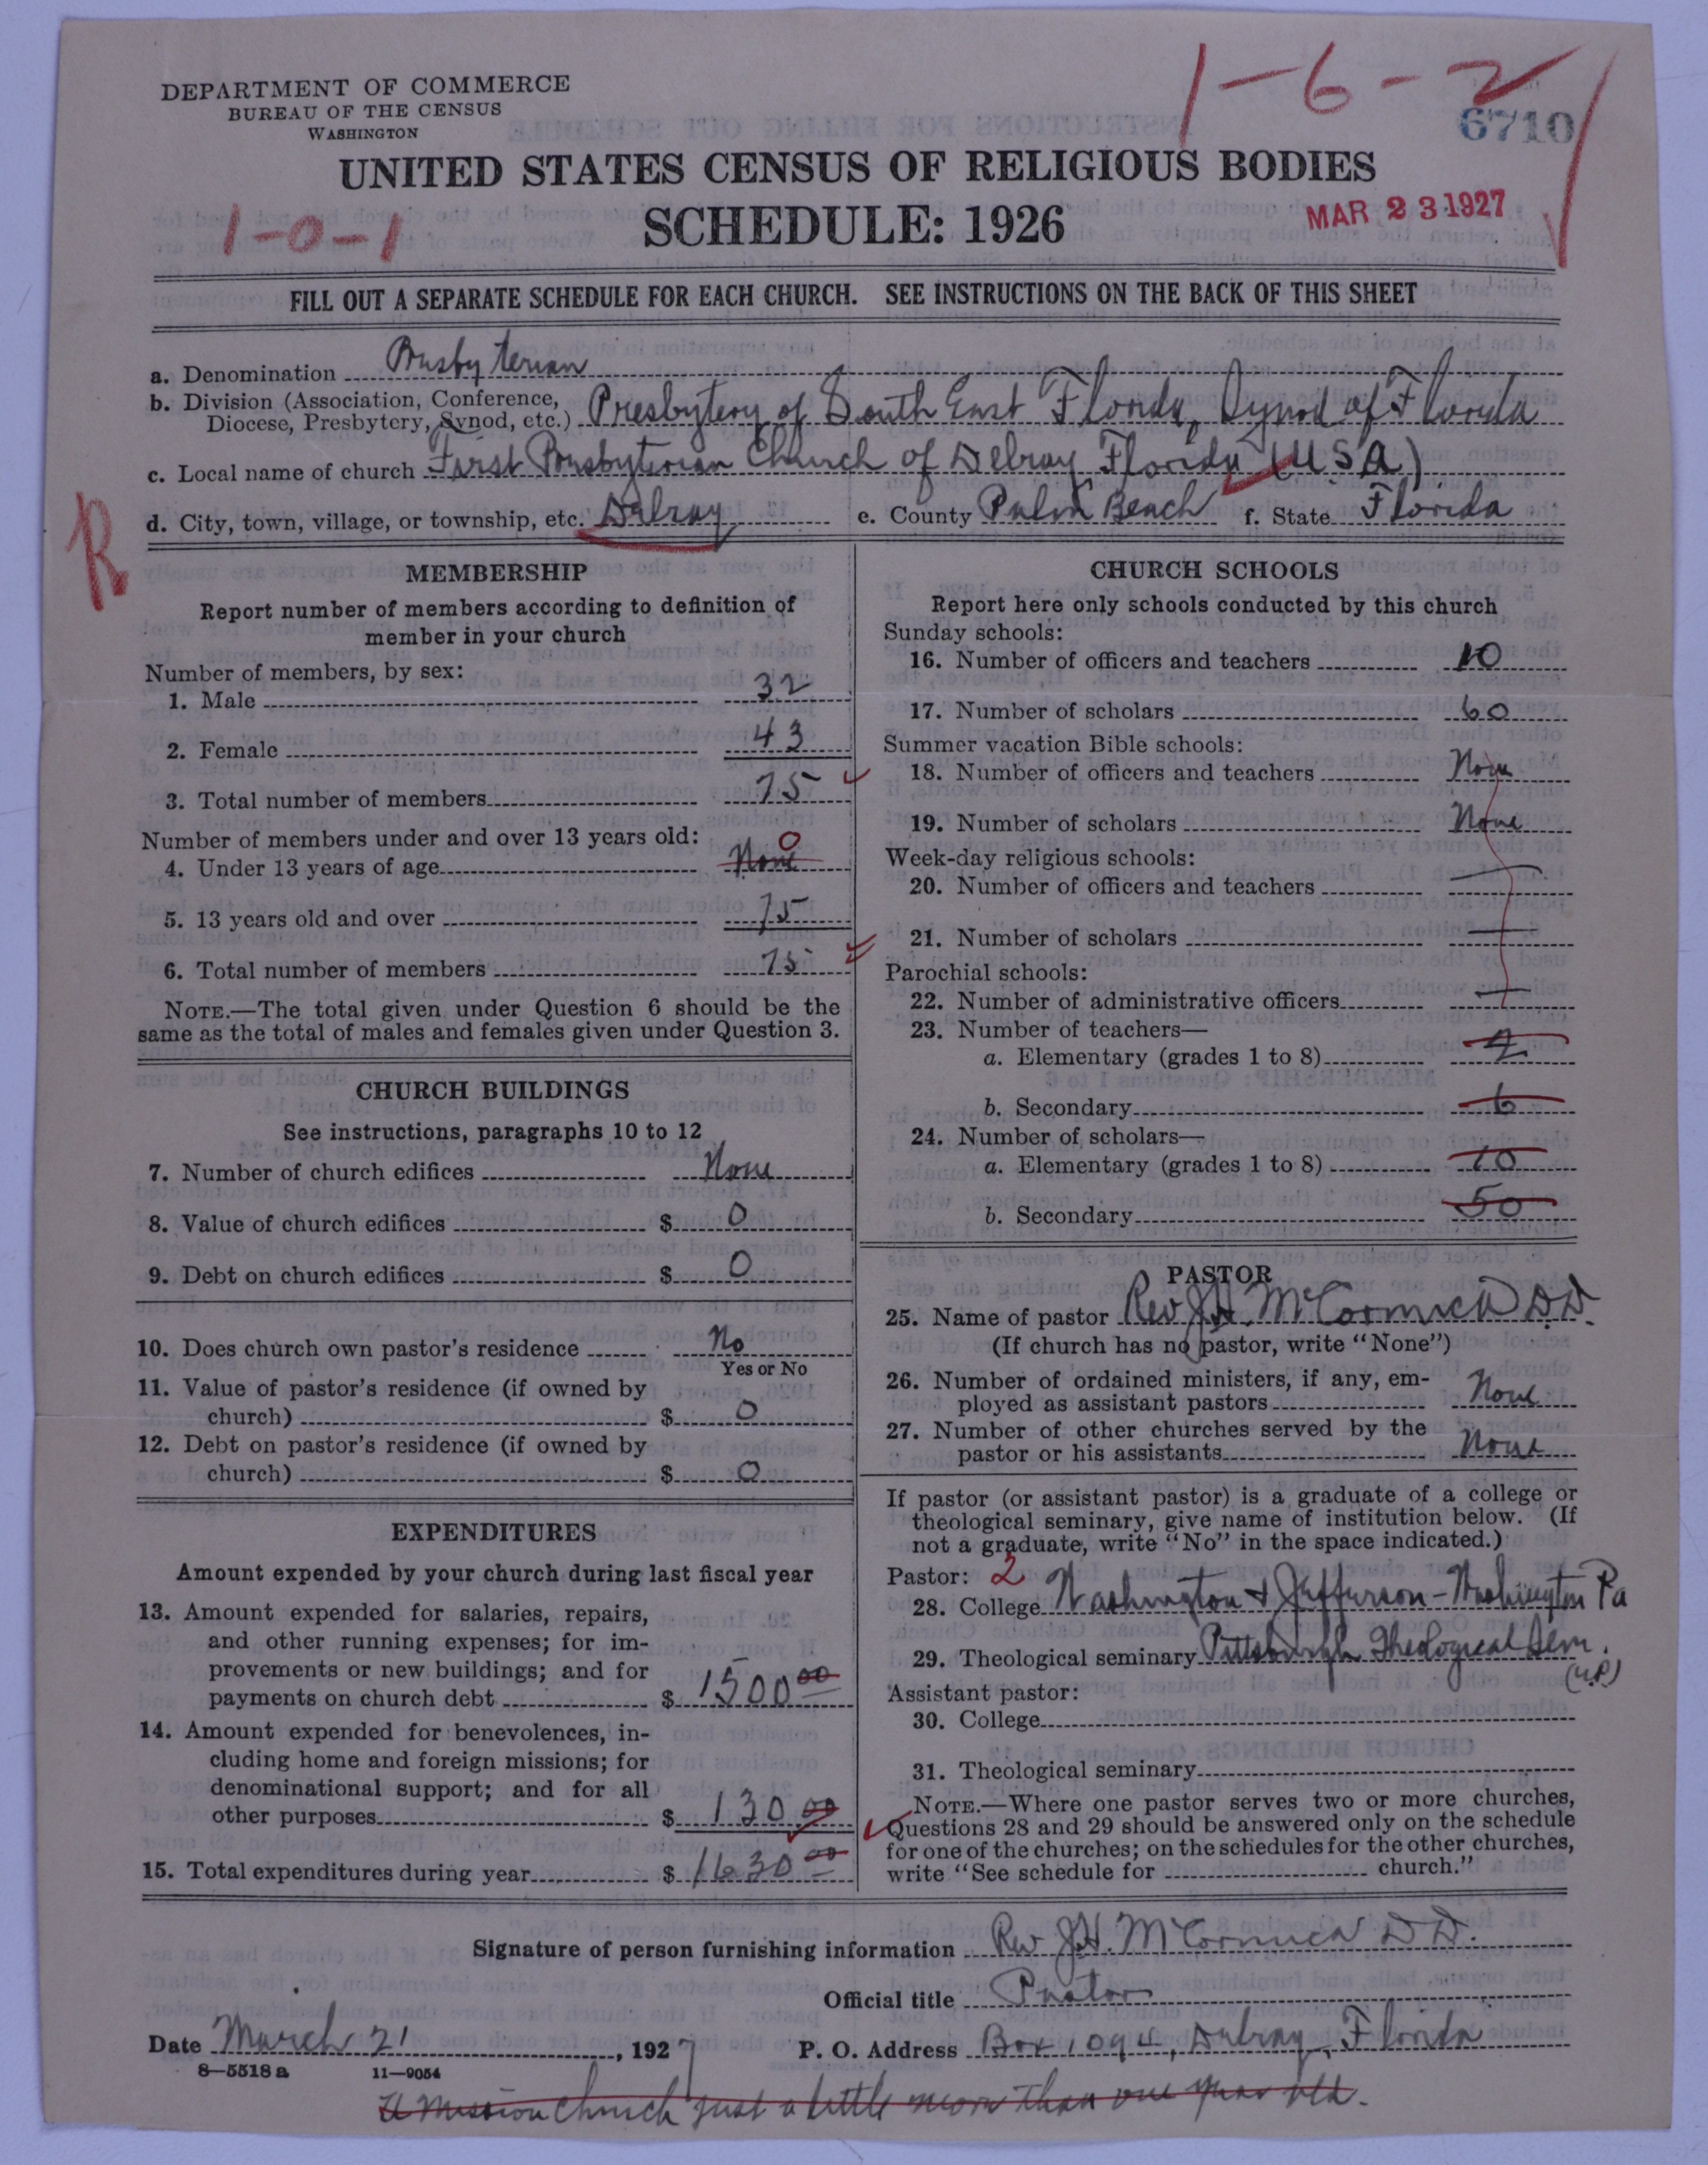 DEPARTMENT OF COMMERCE
BUREAU OF THE CENSUS
WASHINGTON
1-6-2
6710
UNITED STATES CENSUS OF RELIGIOUS BODIES
SCHEDULE: 1926
1-0-1
MAR 23 1927
FILL OUT A SEPARATE SCHEDULE FOR EACH CHURCH. SEE INSTRUCTIONS ON THE BACK OF THIS SHEET
a. Denomination Presbyterian
b. Division (Association, Conference, Diocese, Presbytery, Synod, etc.) Presbytery of South East Florida, Synod of Florida
c. Local name of church First Presbyterian Church of Delray Florida (U.S.A)
R
d. City, town, village, or township, etc. Delray e. County Palm Beach f. State Florida
MEMBERSHIP
Report number of members according to definition of
member in your church
Number of members, by sex:
1. Male 32
2. Female 43
3. Total number of members 75
Number of members under and over 13 years old:
4. Under 13 years of age None 0
5. 13 years old and over 75
6. Total number of members 75
NOTE.—The total given under Question 6 should be the
same as the total of males and females given under Question 3.
CHURCH BUILDINGS
See instructions, paragraphs 10 to 12
7. Number of church edifices None
8. Value of church edifices $ 0
9. Debt on church edifices $ 0
10. Does church own pastor's residence No
Yes or No
11. Value of pastor's residence (if owned by
church) $ 0
12. Debt on pastor's residence (if owned by
church) $ 0
EXPENDITURES
Amount expended by your church during last fiscal year
13. Amount expended for salaries, repairs,
and other running expenses; for im-
provements or new buildings; and for
payments on church debt $ 1500 00
14. Amount expended for benevolences, in-
cluding home and foreign missions; for
denominational support; and for all
other purposes $ 130 00
15. Total expenditures during year $ 1630 00
CHURCH SCHOOLS
Report here only schools conducted by this church
Sunday schools:
16. Number of officers and teachers 10
17. Number of scholars 60
Summer vacation Bible schools:
18. Number of officers and teachers None
19. Number of scholars None
Week-day religious schools:
20. Number of officers and teachers —
21. Number of scholars —
Parochial schools:
22. Number of administrative officers —
23. Number of teachers—
a. Elementary (grades 1 to 8)
b. Secondary 6
24. Number of scholars—
a. Elementary (grades 1 to 8) 10
b. Secondary 50
PASTOR
25. Name of pastor Rev J.H. McCormick D.D.
(If church has no pastor, write "None")
26. Number of ordained ministers, if any, em-
ployed as assistant pastors None
27. Number of other churches served by the
pastor or his assistants None
If pastor (or assistant pastor) is a graduate of a college or
theological seminary, give name of institution below. (If
not a graduate, write "No" in the space indicated.)
Pastor: 2
28. College Washington & Jefferson - Washington Pa
29. Theological seminary Pittsburgh Theological Sem.
(U.P.)
Assistant pastor:
30. College
31. Theological seminary
NOTE.—Where one pastor serves two or more churches,
Questions 28 and 29 should be answered only on the schedule
for one of the churches; on the schedules for the other churches,
write "See schedule for church."
Signature of person furnishing information Rev J.H. McCormick D D.
Official title Pastor
Date March 21, 1927 P. O. Address Box 1094, Delray, Florida
8—5518 a 11—9054
A mission church just a little more than one year old.